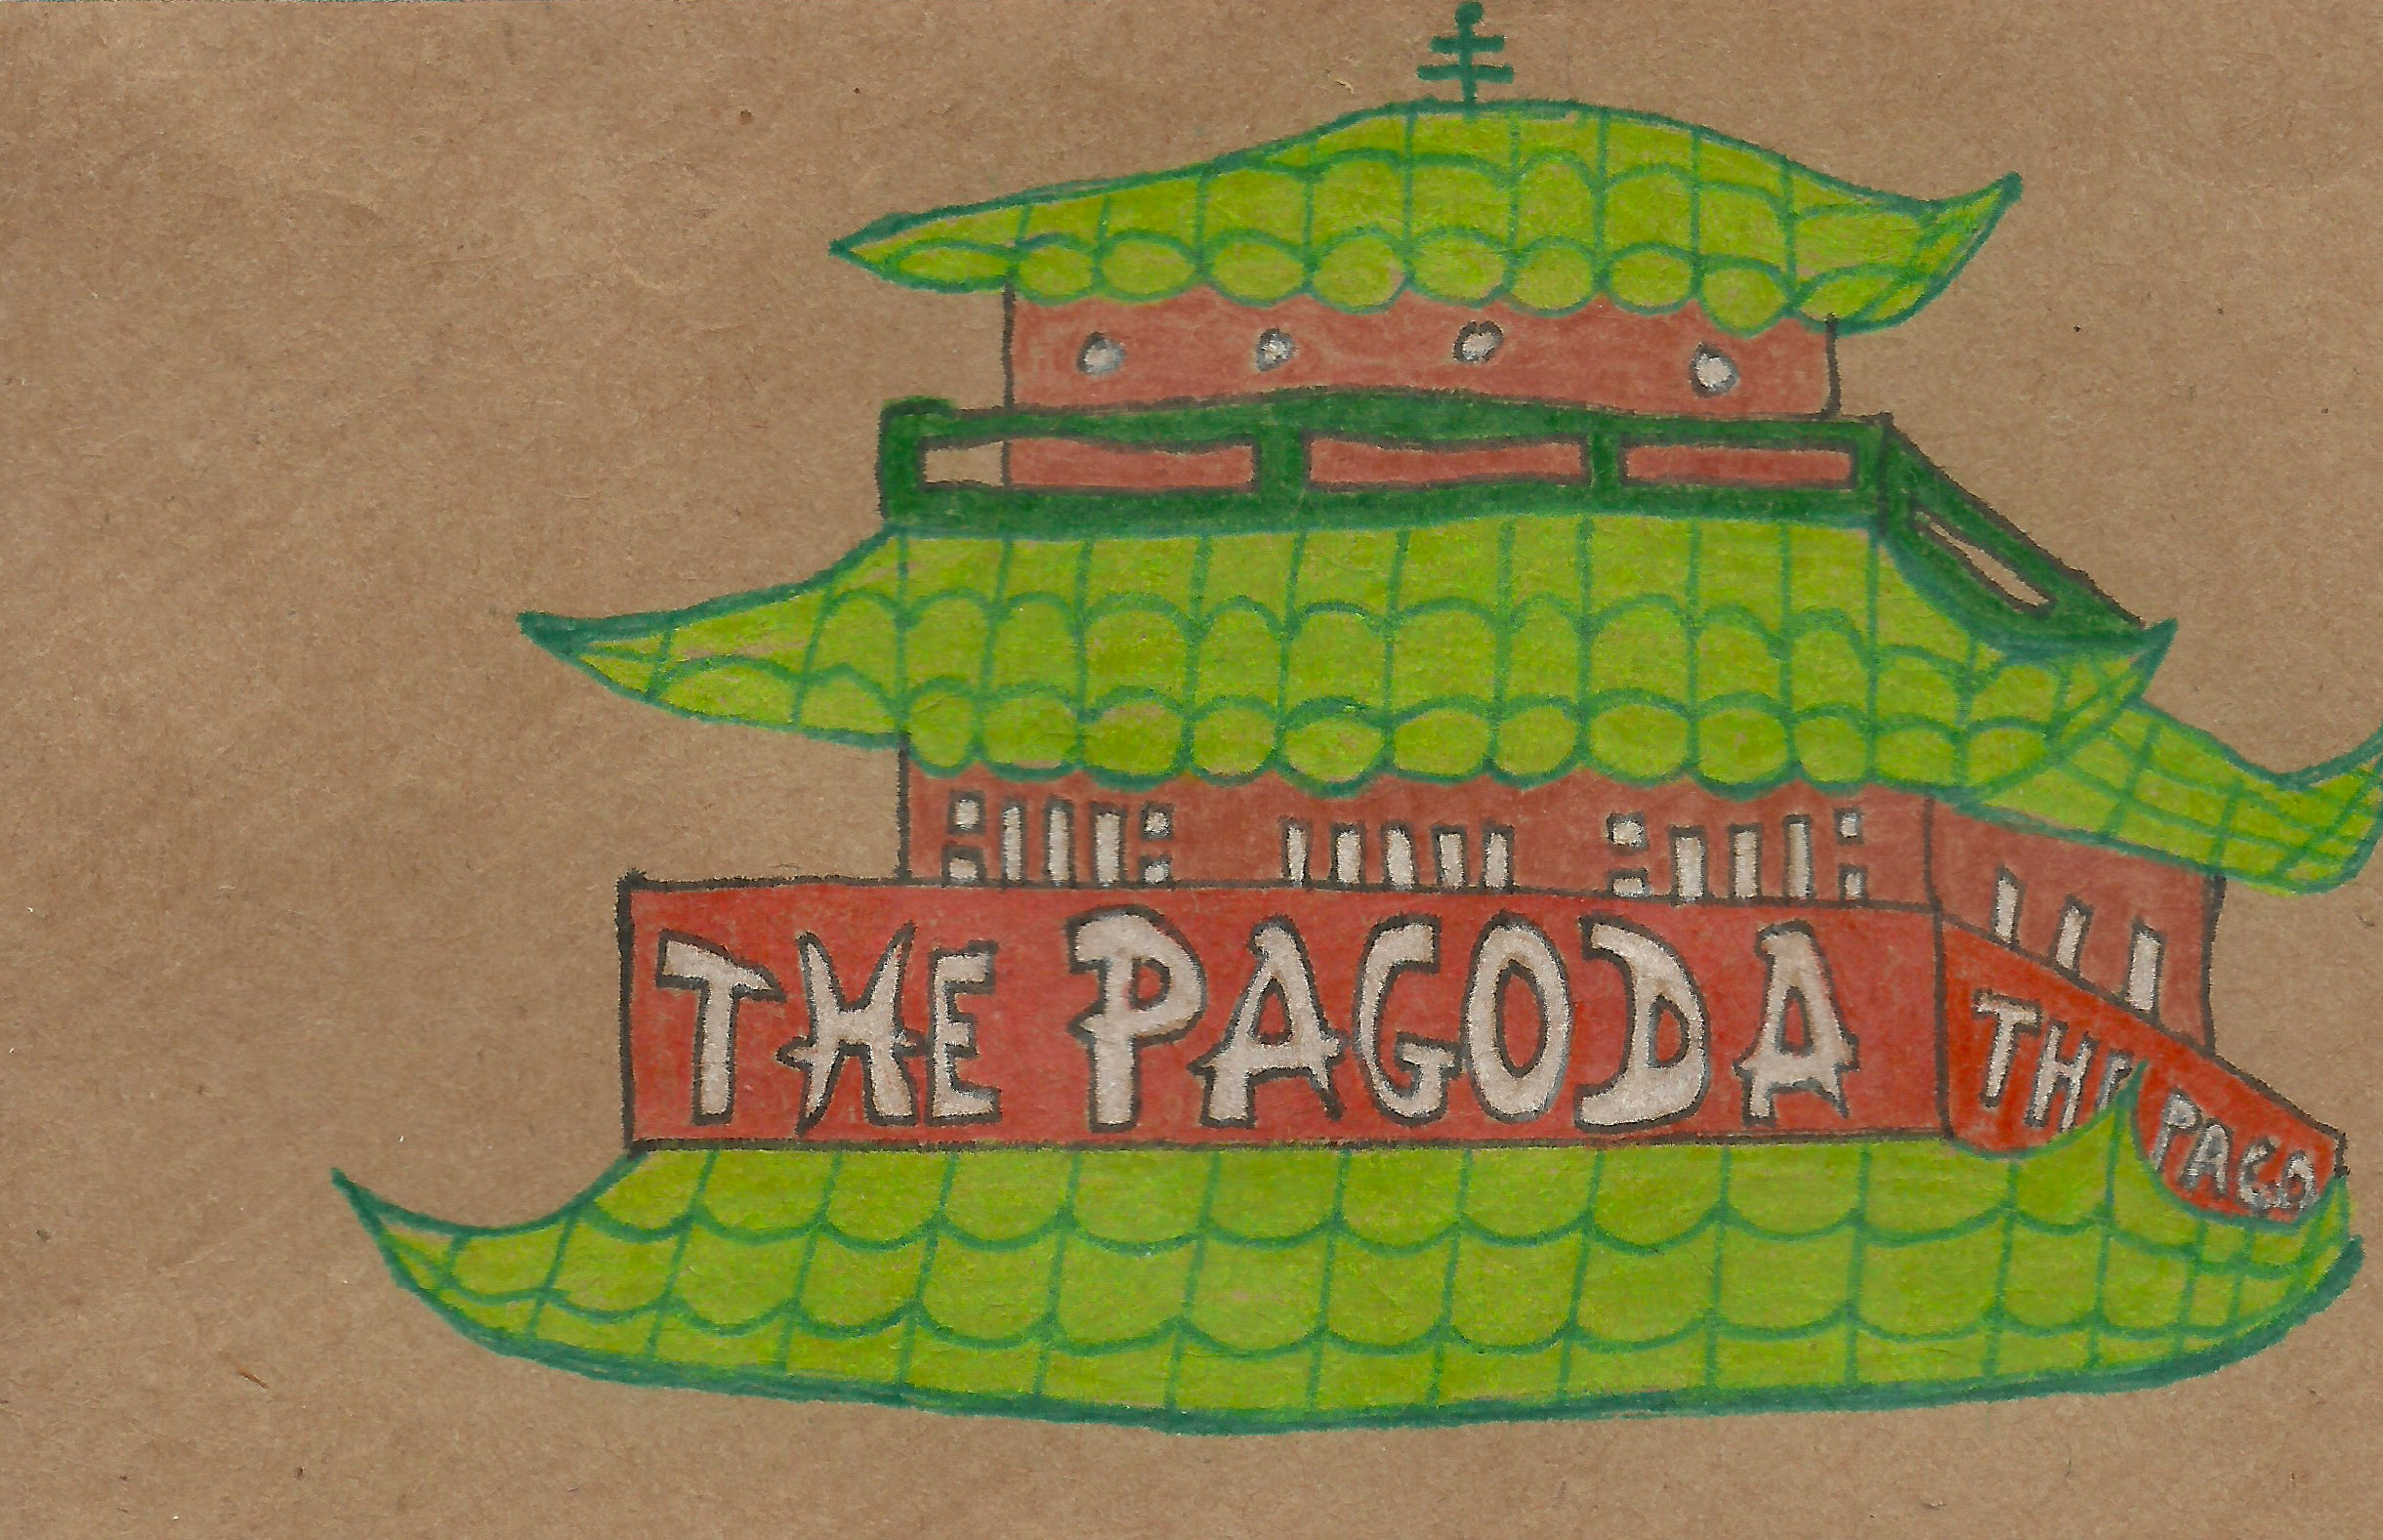 THE PAGODA
TH
PAGO